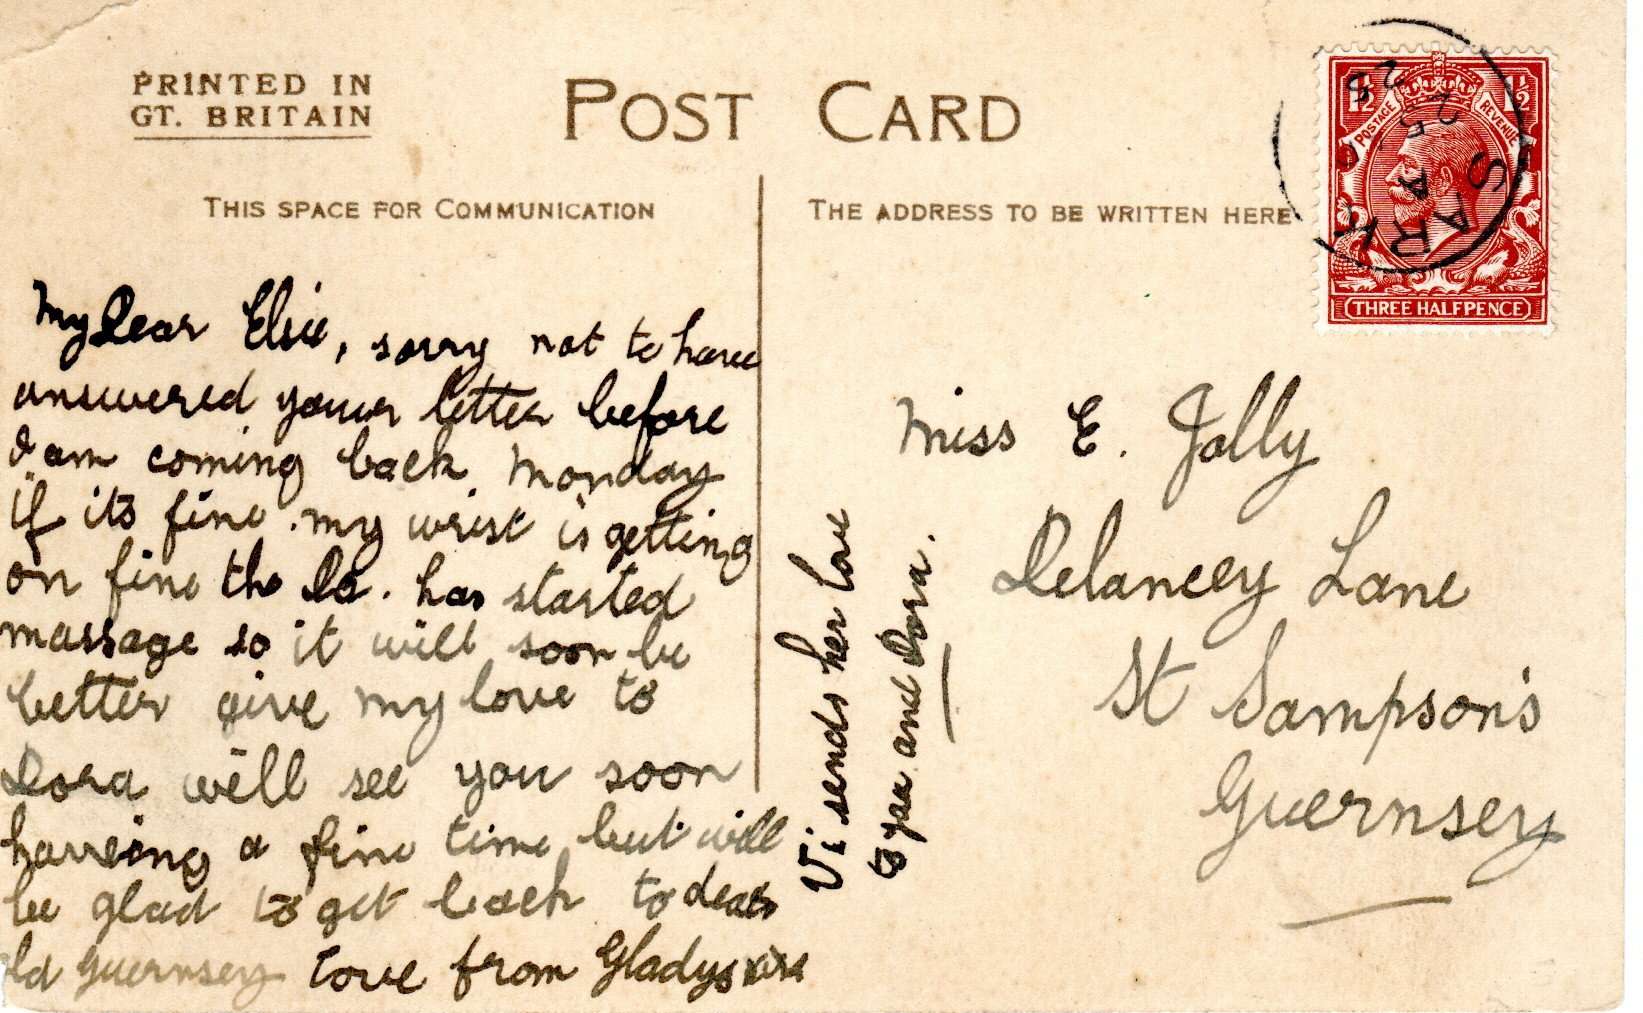 PRINTED IN
GT. BRITAIN
POST CARD
THIS SPACE FOR COMMUNICATION
THE ADDRESS TO BE WRITTEN HERE
1½ 1½
POSTAGE REVENUE
THREE HALFPENCE
SARK
A
25
25
My Dear Elsie, sorry not to have
answered your letter before
I am coming back Monday
if its fine. my wrist is getting
on fine the Dr. has started
massage so it will soon be
better give my love to
Dora will see you soon
having a fine time but will
be glad to get back to dear
old Guernsey Love from Gladys xxx
Vi sends her love
to you and Dora.
Miss E. Jolly
Delancey Lane
St Sampson's
Guernsey